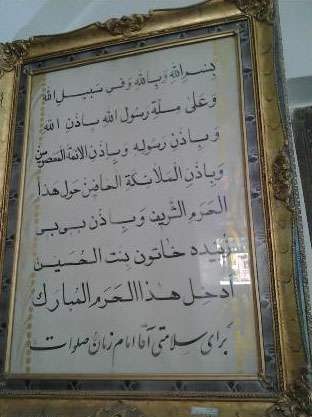 بِسْمِ اللهِ وَبِاللهِ وَفی سَبیلِ اللهِ
وَعَلیٰ مِلَّةِ رَسُولِ اللهِ بِاِذْنِ اللهِ
وَبِاِذْنِ رَسُولِهِ وَبِاِذْنِ الاَئِمَّةِ المَعصُومین
وَبِاِذْنِ المَلائِکَةِ الحافّینَ حَولَ هذا
الحَرَمِ الشَّریفِ وَبِاِذْنِ بی بی
زبیده خاتون بِنت الحُسَین
اَدخُلُ هذَا الحَرَمَ المُبارَك
برای سلامتی آقا امام زمان صلوات